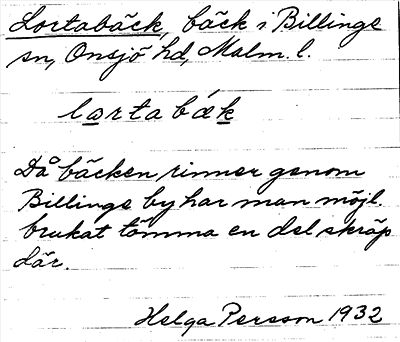 Lortabäck, bäck i Billinge
sn, Onsjö hd, Malm. l.
lortabäk
Då bäcken rinner genom
Billinge by har man möjl.
brukat tömma en del skräp
där.
Helga Persson 1932